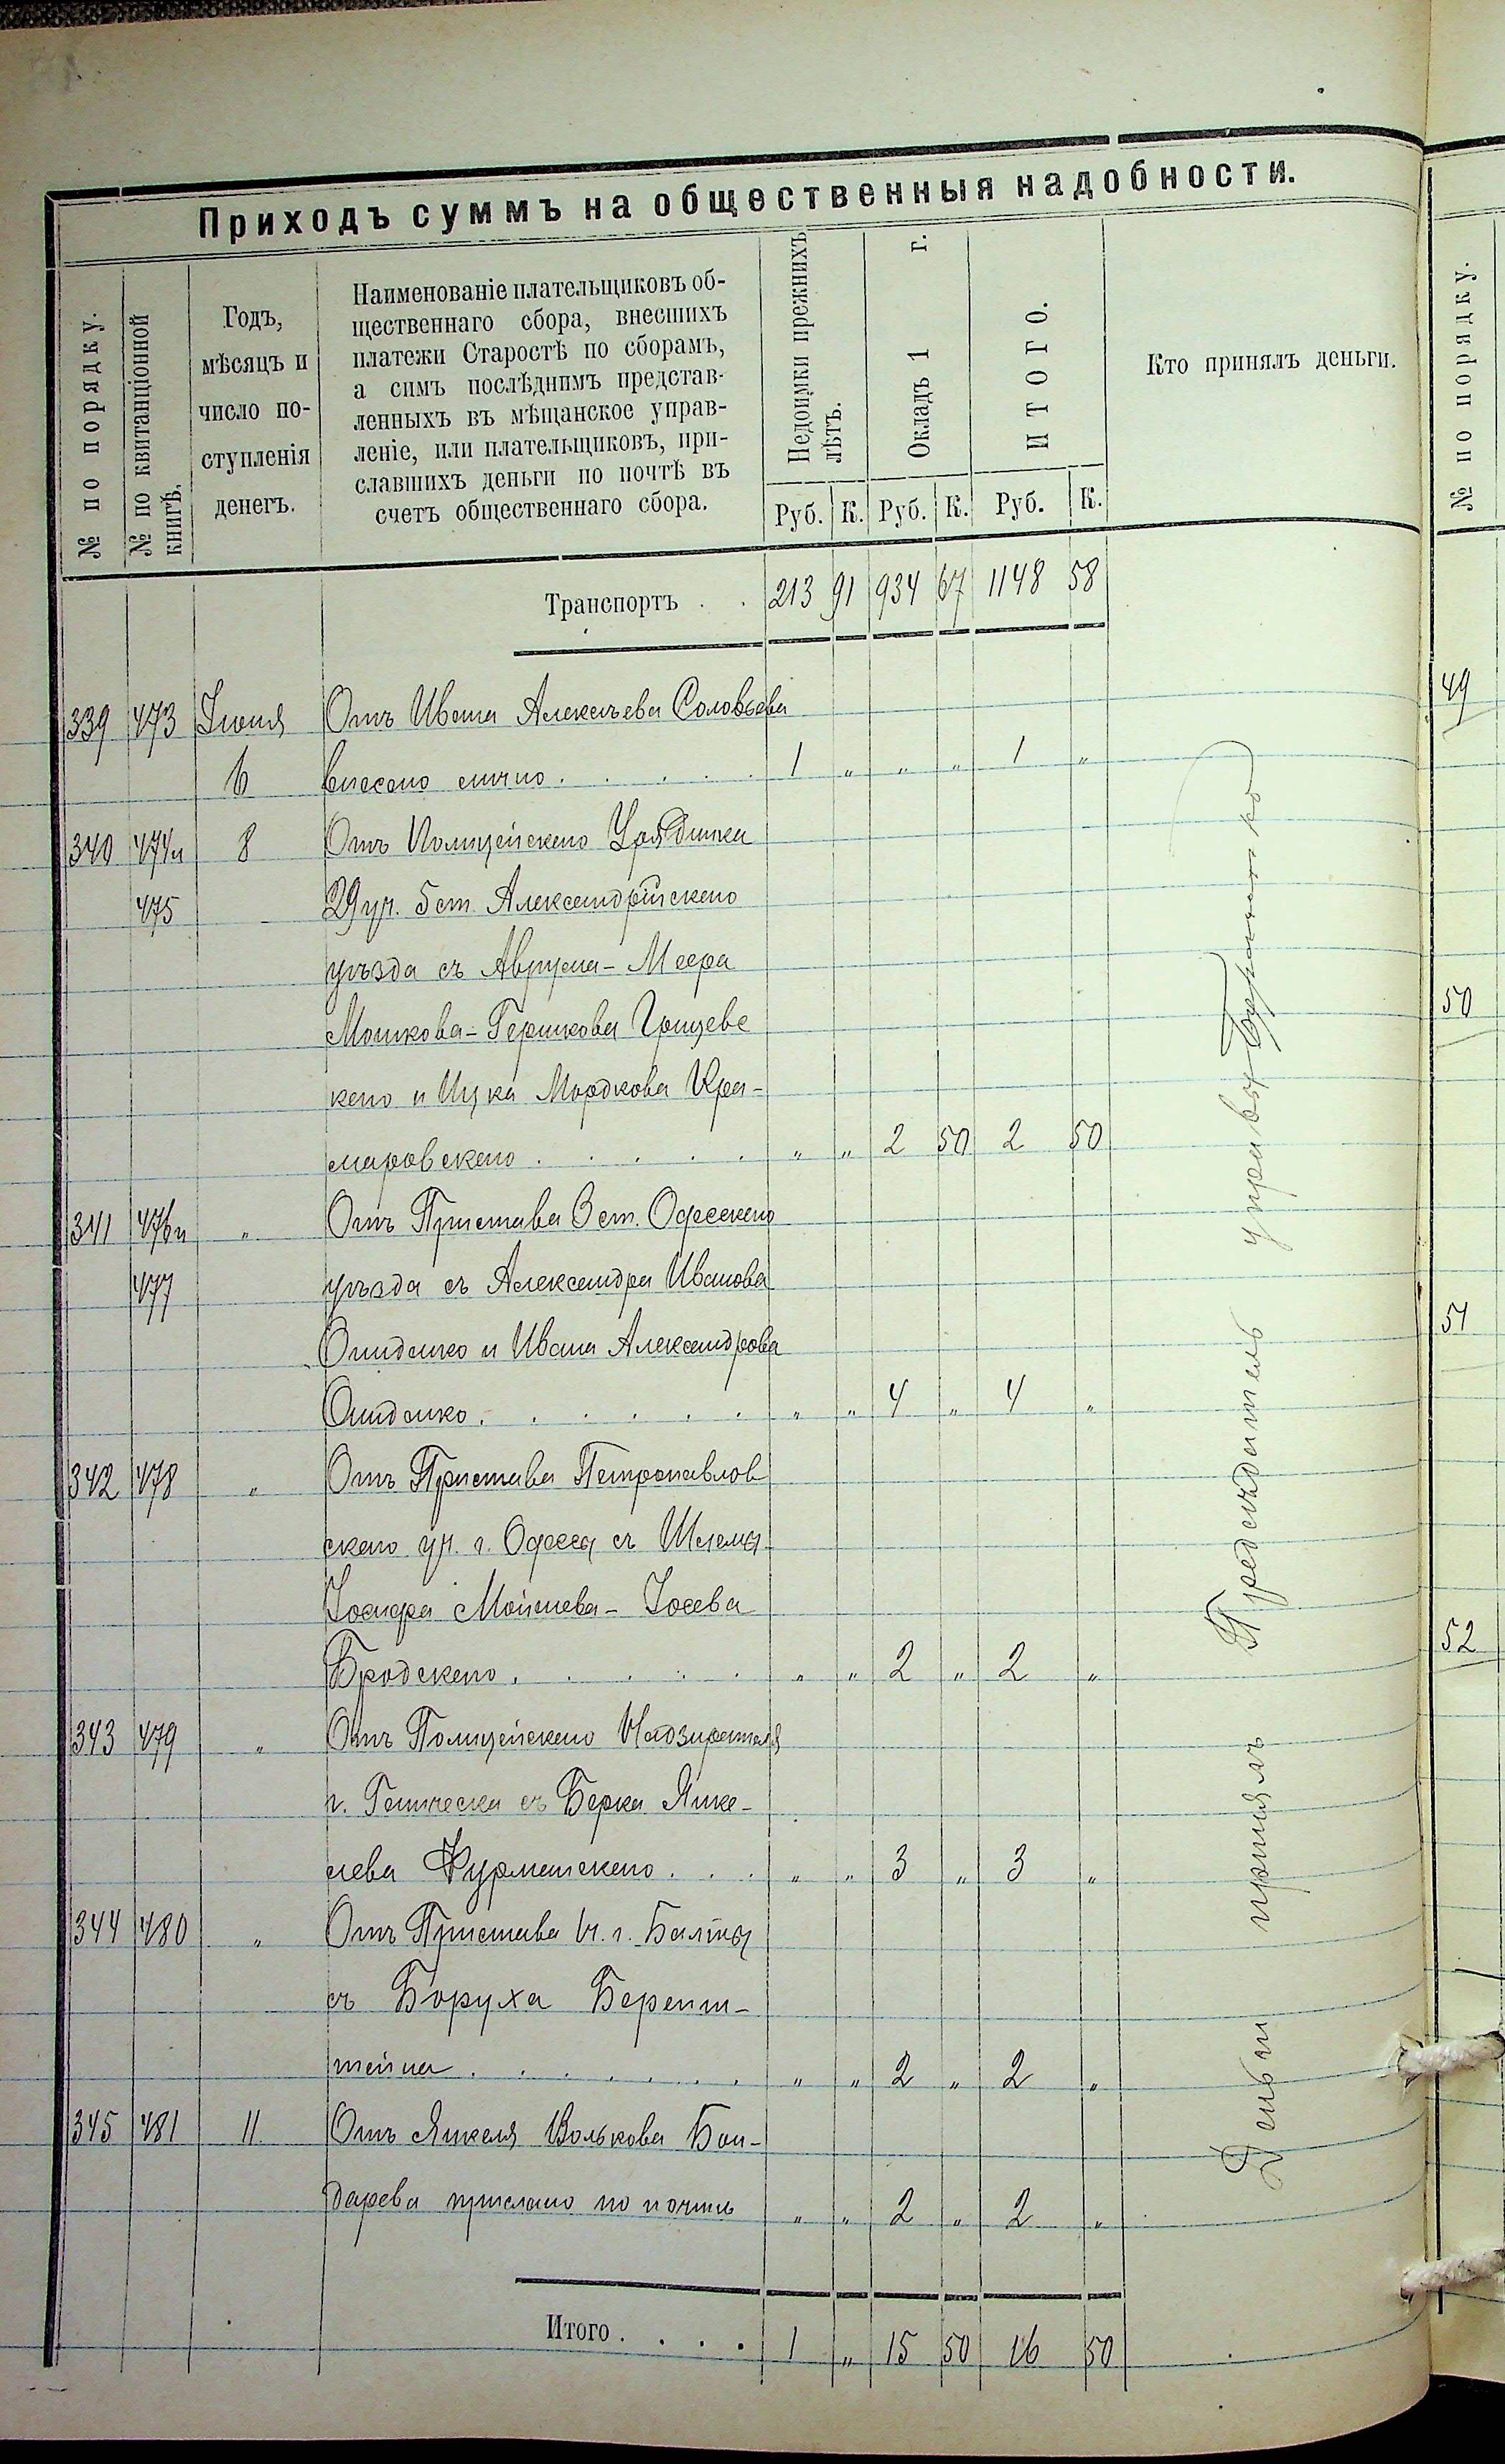 Приходъ суммъ на общественныя надобности.
№ по порядку.
№ по квитанціонной книгѣ.
Годъ,
мѣсяцъ и
число по-
ступленія
денегъ.
Наименованіе плательщиковъ об-
щественнаго сбора, внесшихъ
платежи Старостѣ по сборамъ,
а симъ послѣднимъ представ-
ленныхъ въ мѣщанское управ-
леніе, или плательщиковъ, при-
славшихъ деньги по почтѣ въ
счетъ общественнаго сбора.
Недоимки прежнихъ лѣтъ.
Окладъ 1 г.
ИТОГО.
Кто принялъ деньги.
Руб. К. Руб. К. Руб. К.
Транспортъ . . 213 91 934 67 1148 58
339 473 Іюня Отъ Ивана Алексѣева Соловьева
6 внесено лично . . . . . 1 „ „ „ 1 „
340 474 и 8 Отъ Полицейскаго Урядника
475 29 уч. 5 ст. Александрійскаго
уѣзда съ Аврума-Меера
Мошкова-Гершкова Грицевс
каго и Ицка Мордкова Кра-
маровскаго . . . . . „ „ 2 50 2 50
341 476 и „ Отъ Пристава 3 ст. Одесскаго
477 уѣзда съ Александра Иванова
и Ивана Александрова
„ „ 4 „ 4 „
342 478 „ Отъ Пристава Петропавлов
скаго уч. г. Одессы съ Шлемы
Іосифа Мойшева-Іосева
Бродскаго . . . . . „ „ 2 „ 2 „
343 479 „ Отъ Полицейскаго Надзирателя
г. Геническа съ Берка Янке-
лева Фурманскаго . . . „ „ 3 „ 3 „
344 480 „ Отъ Пристава г. Балты
съ Боруха Беренш-
тейна . . . . . . . „ „ 2 „ 2 „
345 481 11 Отъ Янкеля Волькова Бон-
дарева прислано по почтѣ „ „ 2 „ 2 „
Итого . . . . 1 „ 15 50 16 50
Деньги принялъ Предсѣдатель управы
№ по порядку.
49
50
51
52